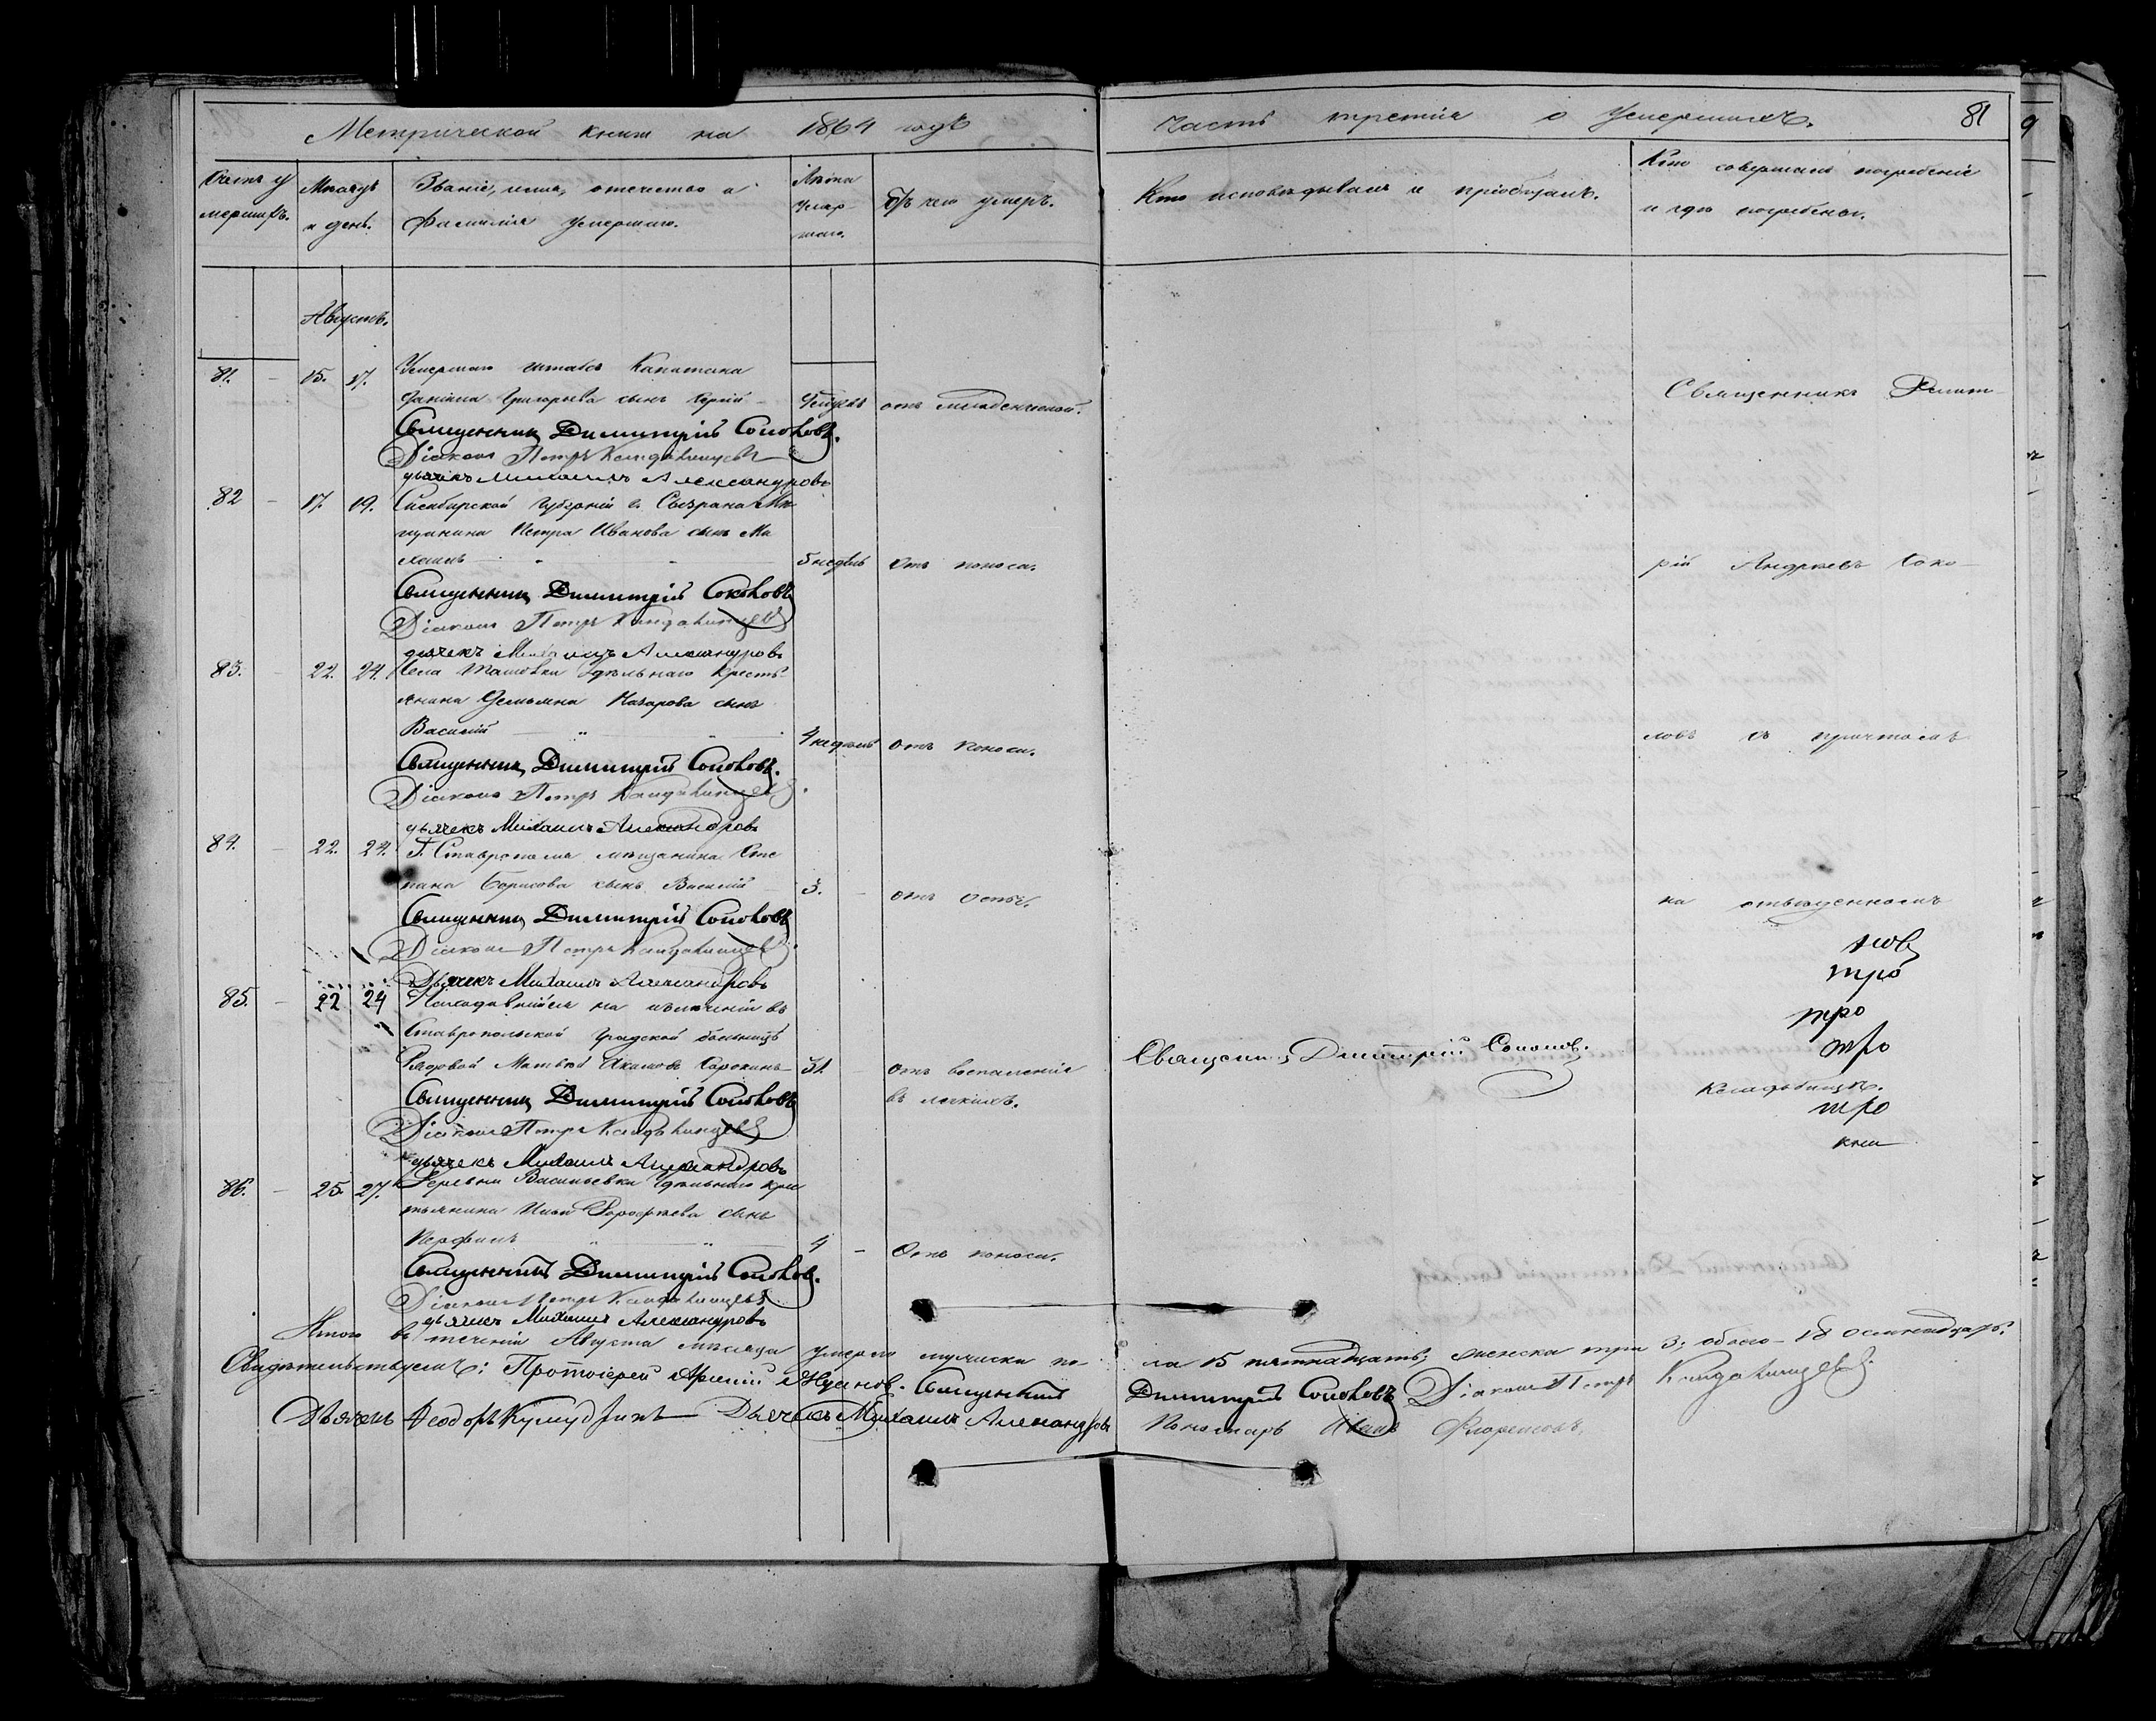 Метрической книги на 1864 годъ
Часть третія о Умершихъ.
81
Счетъ умершихъ.
Мѣсяцъ и день.
Званіе, имя, отечество и
фамилія умершаго.
Лѣта
умер-
шаго.
Отъ чего умеръ.
Кто исповѣдывалъ и пріобщалъ.
Кто совершалъ погребеніе
и гдѣ погребены.
Августъ.
81. 15. 17. Умершаго штабсъ Капитана
Григорьева сынъ Сергій
отъ младенческой.
Священникъ Димит-
Священникъ Димитрій Соколовъ.
Діаконъ Петръ
дьячекъ Михаилъ Александровъ
82 17. 19. Симбирской губерніи г. Сызрана Мѣ
щанина Петра Иванова сынъ Ми
хаилъ
5 недѣль Отъ поноса.
рій Андреевъ Соко-
Священникъ Димитрій Соколовъ
Діаконъ Петръ
дьячекъ Михаилъ Александровъ
83. 22. 24. Села Ташовки Удѣльнаго Кресть
янина Емельяна Назарова сынъ
Василій
4 недѣль Отъ поноса.
ловъ съ причтомъ
Священникъ Димитрій Соколовъ.
Діаконъ Петръ
дьячекъ Михаилъ Александровъ
84. 22. 24. Г. Ставрополя мѣщанина Сте
пана Борисова сынъ Василій
3. отъ оспы.
на отведенномъ
Священникъ Димитрій Соколовъ
Діаконъ Петръ
Дьячекъ Михаилъ Александровъ
85. 22 24 на излеченіи въ
Ставропольской градской больницѣ
Рядовой Матвѣй Сорокинъ
31 отъ воспаленія
въ легкихъ.
Священникъ Димитрій Соколовъ.
Кладбищѣ.
Священникъ Димитрій Соколовъ
Діаконъ Петръ
дьячекъ Михаилъ Александровъ
86. 25. 27. Деревни Васильевки Удѣльнаго кре
стьянина Ильи Дорофѣева сынъ
4 Отъ поноса.
Священникъ Димитрій Соколовъ.
Діаконъ Петръ
дьячекъ Михаилъ Александровъ
Итого въ теченіи Августа мѣсяца умерло мужеска по-
ла 15 пятнадцать; женска три 3; обоего 18 осмнадцать.
Свидѣтельствуемъ: Протоіерей Священникъ
Димитрій Соколовъ Діаконъ Петръ
Дьячекъ Ѳеодоръ Дьячекъ Михаилъ Александровъ
Пономарь Иванъ